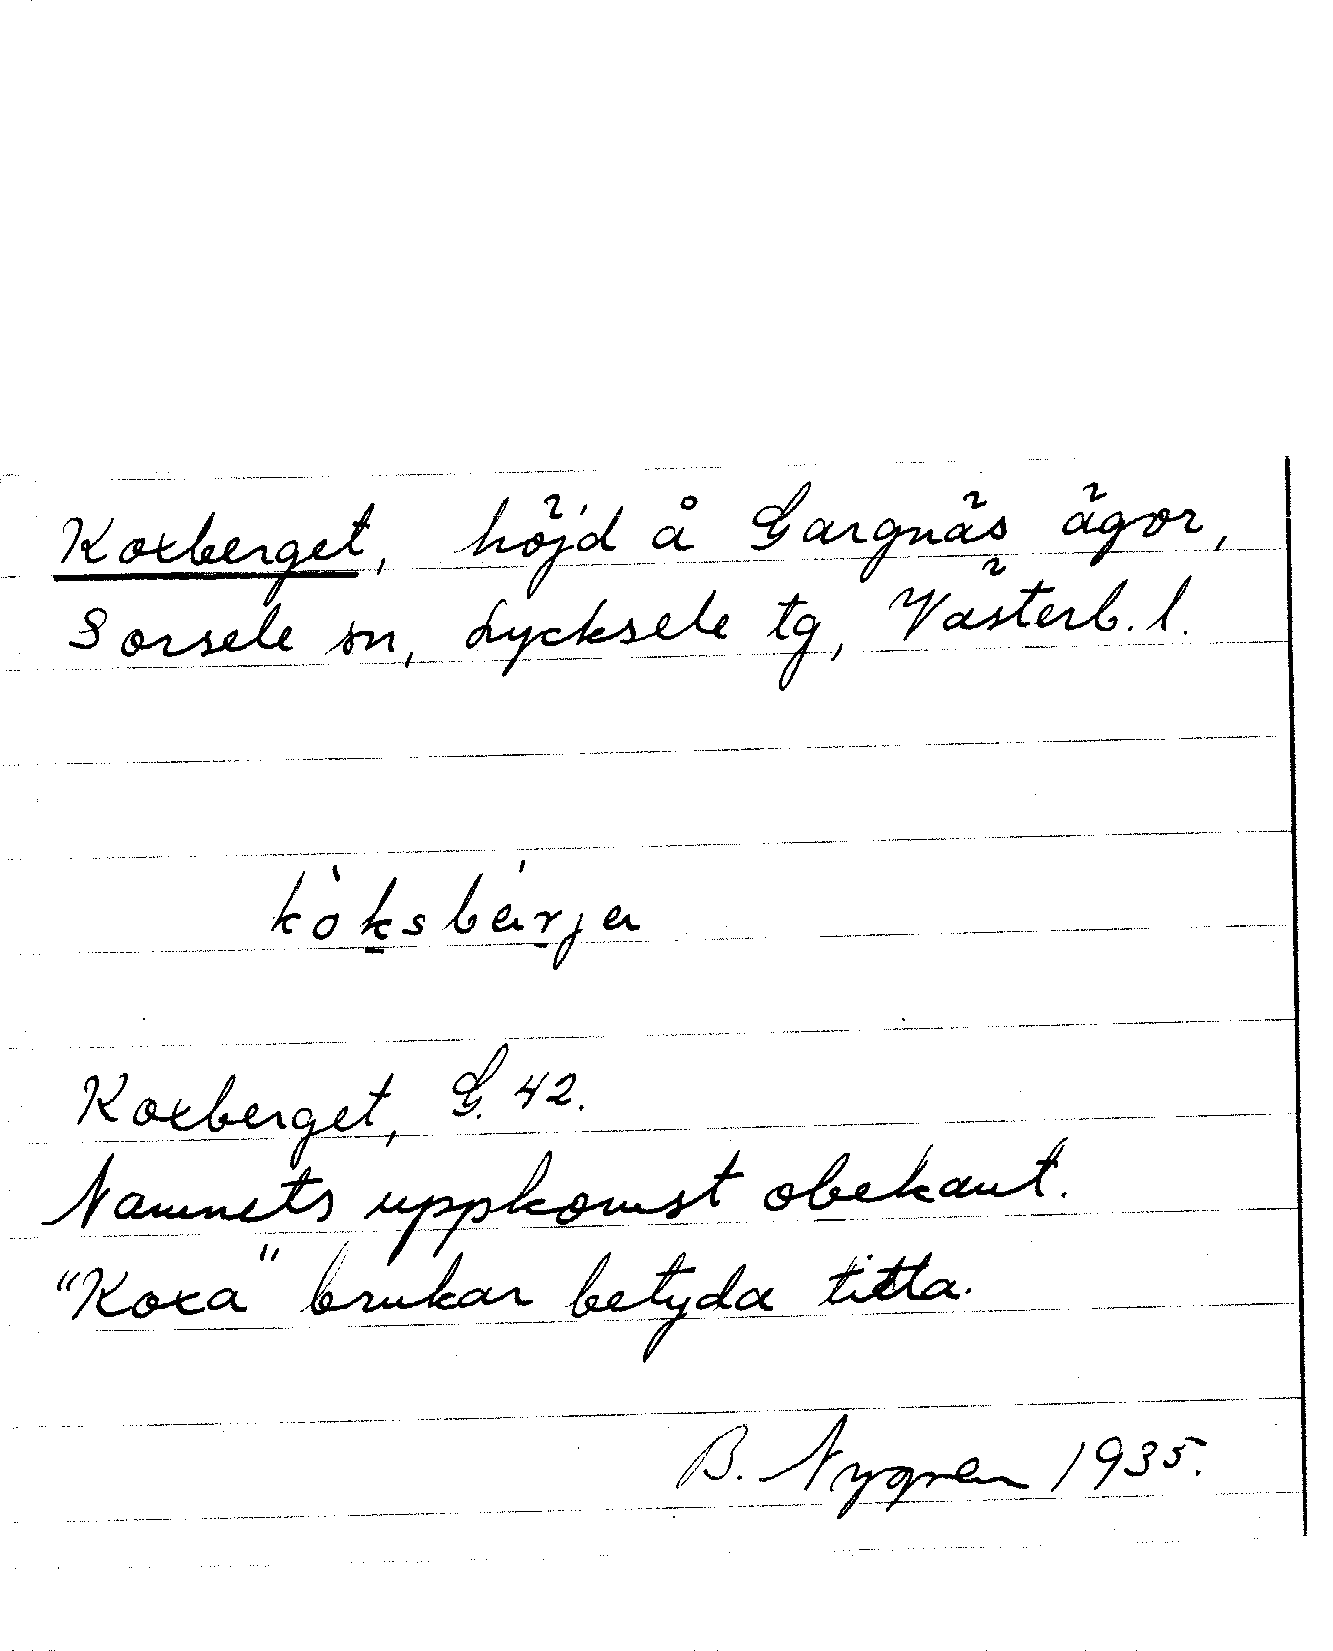 Koxberget, höjd å Gargnäs ägor,
Sorsele sn, Lycksele tg, Västerb. l.
kòksbárja
Koxberget, G. 42.
Namnets uppkomst obekant.
"Koxa" brukar betyda titta.
B. Nygren 1935.